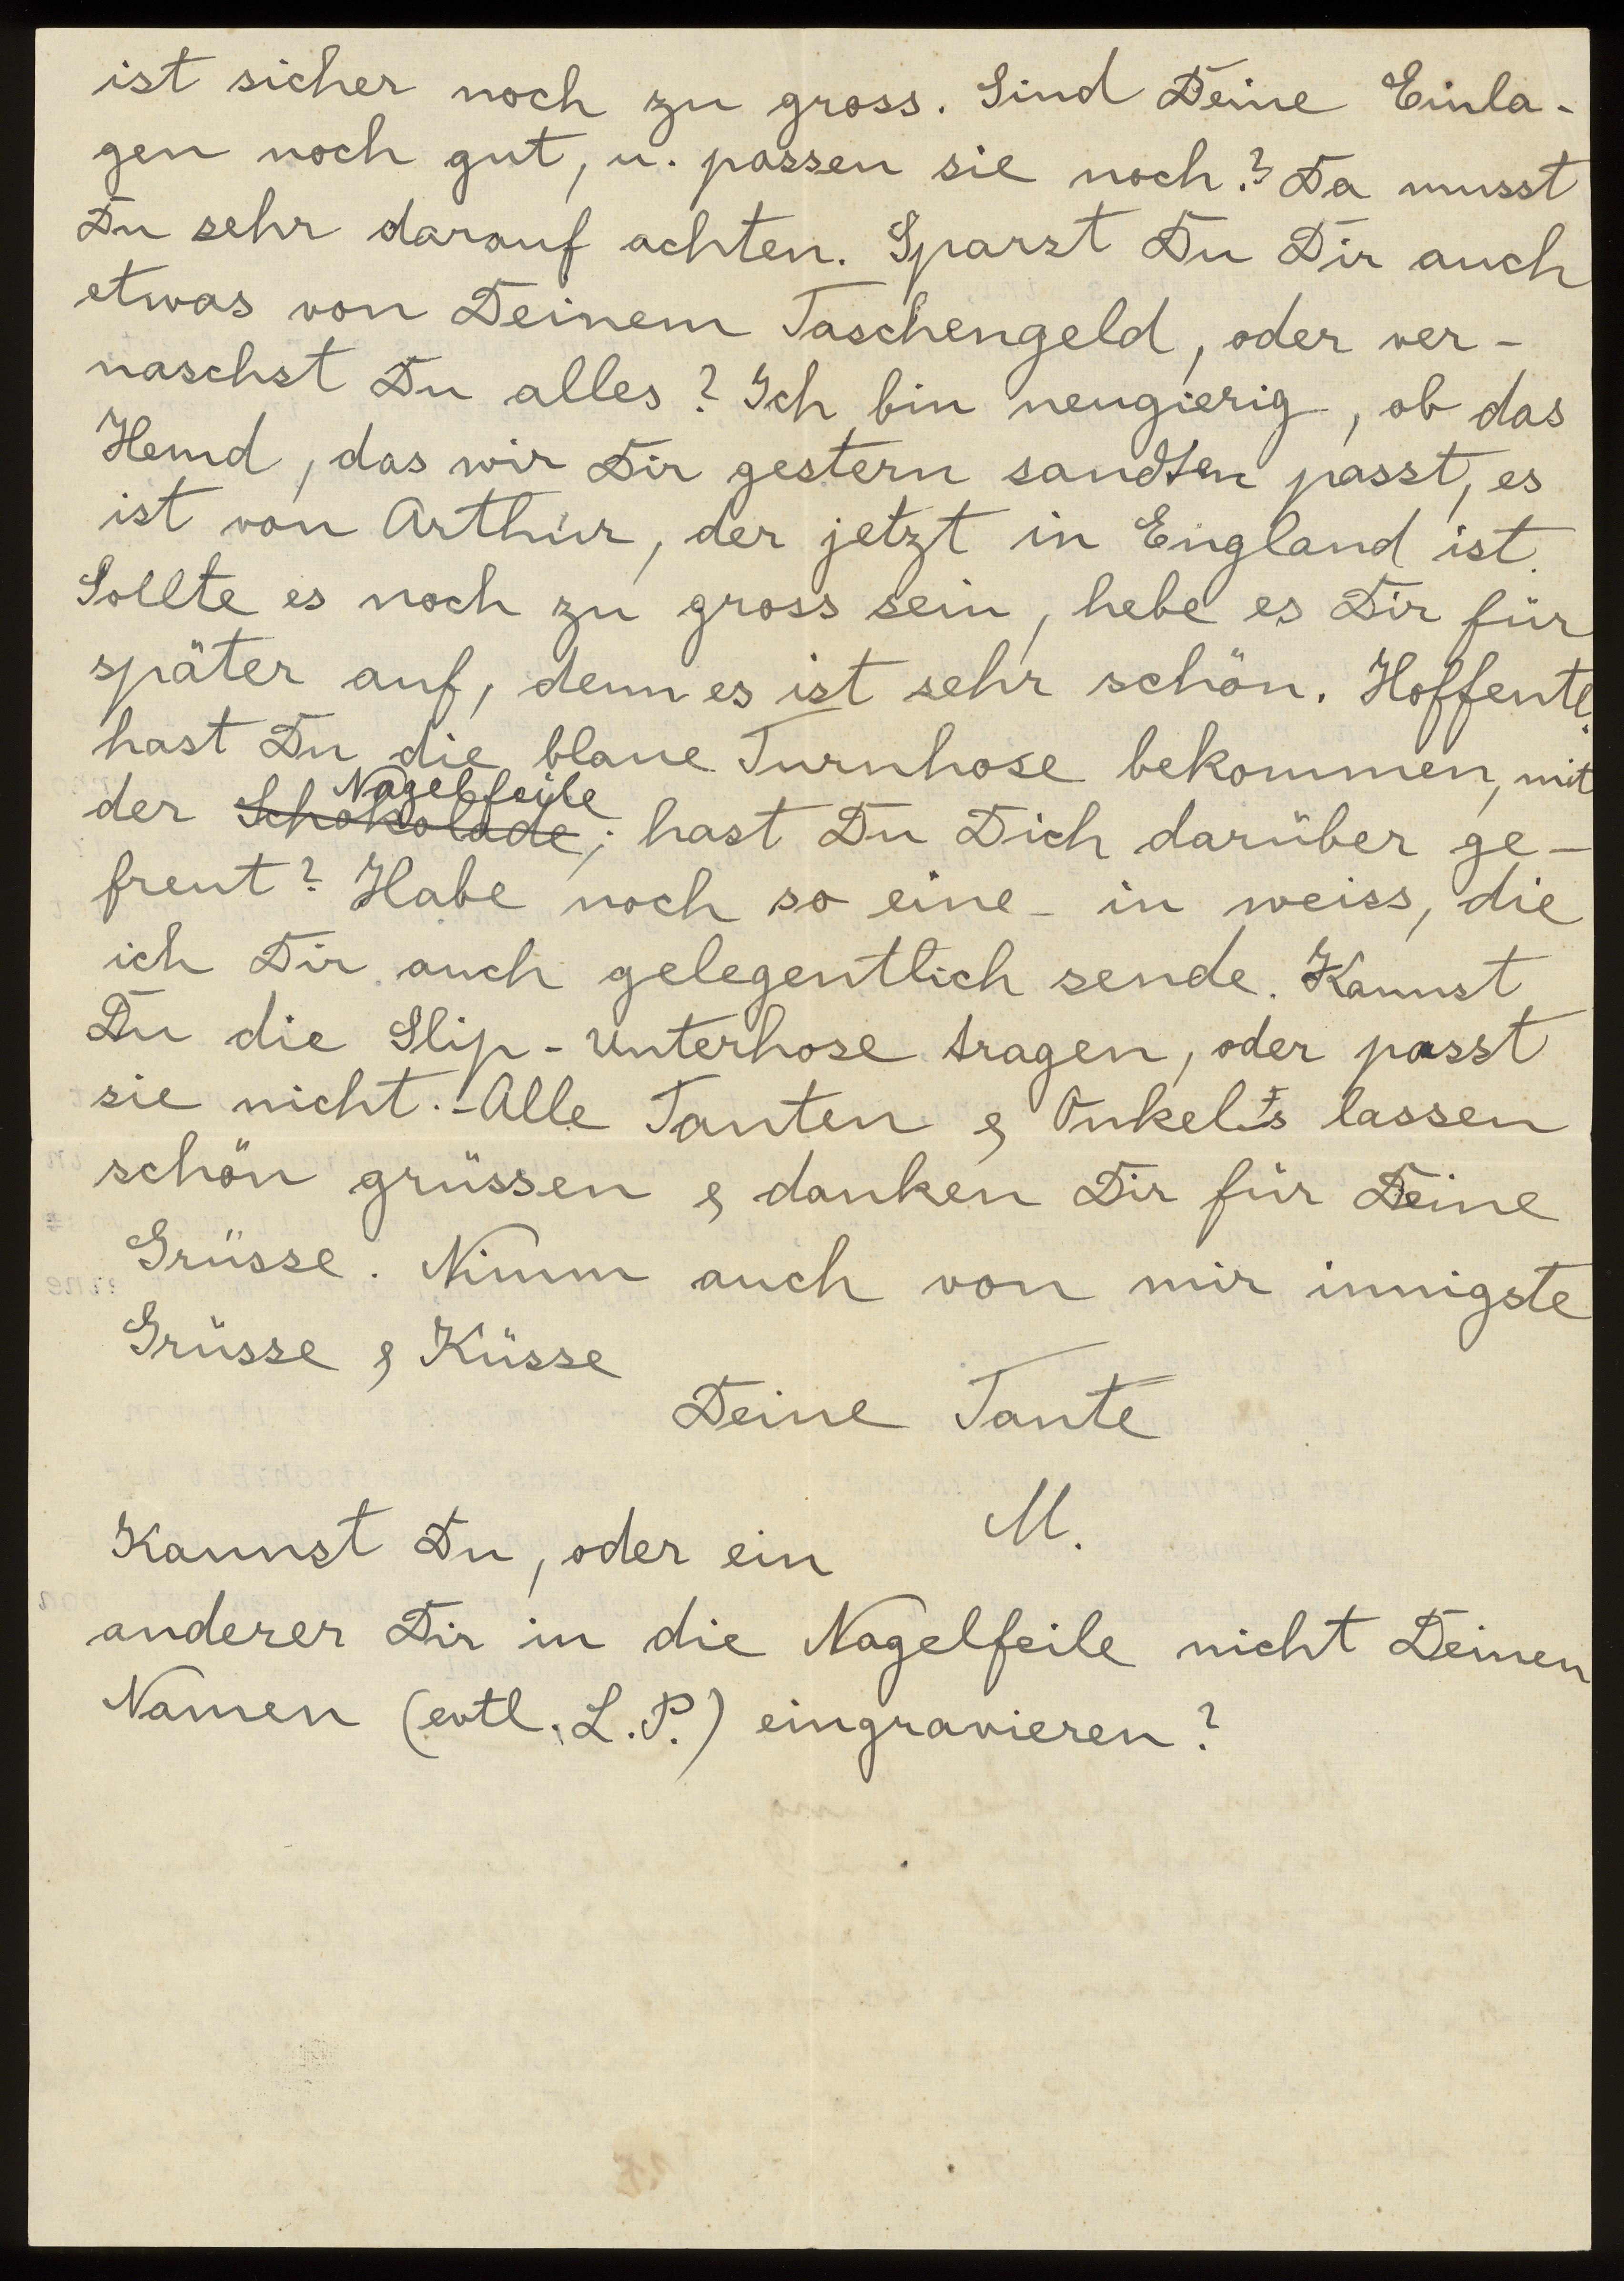 ist sicher noch zu gross. Sind Deine Einla-
gen noch gut, u. passen sie noch? Da musst
Du sehr darauf achten. Sparst Du Dir auch
etwas von Deinem Taschengeld, oder ver-
naschst Du alles? Ich bin neugierig, ob das
Hemd, das wir Dir gestern sandten passt, es
ist von Arthur, der jetzt in England ist.
Sollte es noch zu gross sein, hebe es Dir für
später auf, denn es ist sehr schön. Hoffentl.
hast Du die blaue Turnhose bekommen, mit
Nagelfeile
der Schokolade; hast Du Dich darüber ge-
freut? Habe noch so eine - in weiss, die
ich Dir auch gelegentlich sende. Kannst
Du die Slip-Unterhose tragen, oder passt
sie nicht.-Alle Tanten & Onkel's lassen
schön grüssen & danken Dir für Deine
Grüsse. Nimm auch von mir innigste
Grüsse & Küsse
Deine Tante
M.
Kannst Du, oder ein
anderer Dir in die Nagelfeile nicht Deinen
Namen (evtl. L.P.) eingravieren?